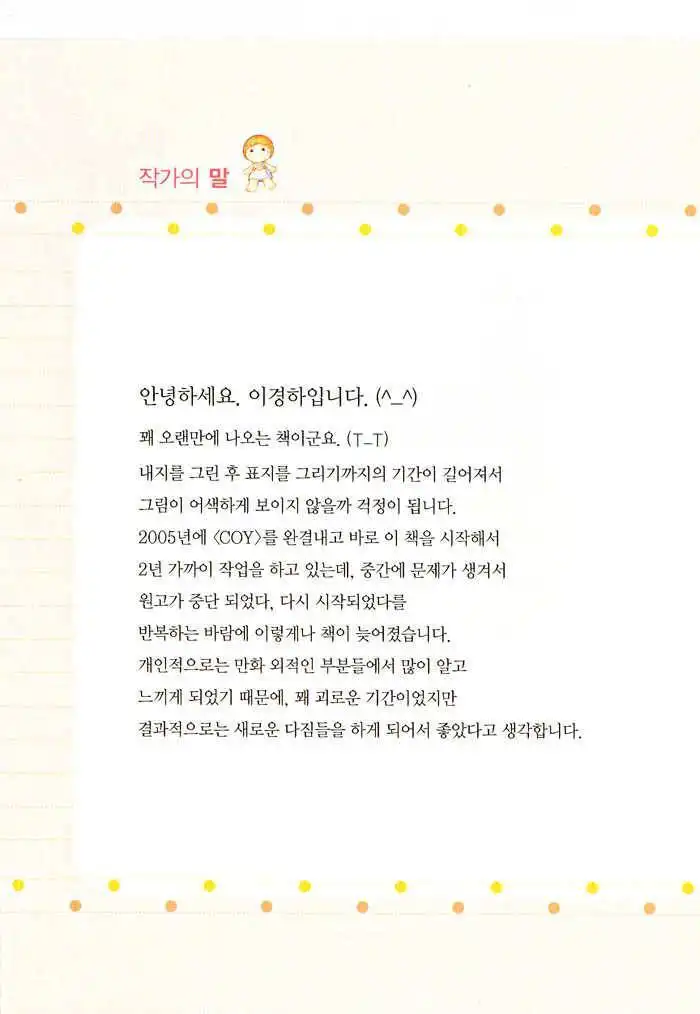 작가의 말
안녕하세요. 이경하입니다. (^_^)
꽤 오랜만에 나오는 책이군요. (T_T)
내지를 그린 후 표지를 그리기까지의 기간이 길어져서
그림이 어색하게 보이지 않을까 걱정이 됩니다.
2005년에 〈COY〉를 완결내고 바로 이 책을 시작해서
2년 가까이 작업을 하고 있는데, 중간에 문제가 생겨서
원고가 중단 되었다, 다시 시작되었다를
반복하는 바람에 이렇게나 책이 늦어졌습니다.
개인적으로는 만화 외적인 부분들에서 많이 알고
느끼게 되었기 때문에, 꽤 괴로운 기간이었지만
결과적으로는 새로운 다짐들을 하게 되어서 좋았다고 생각합니다.